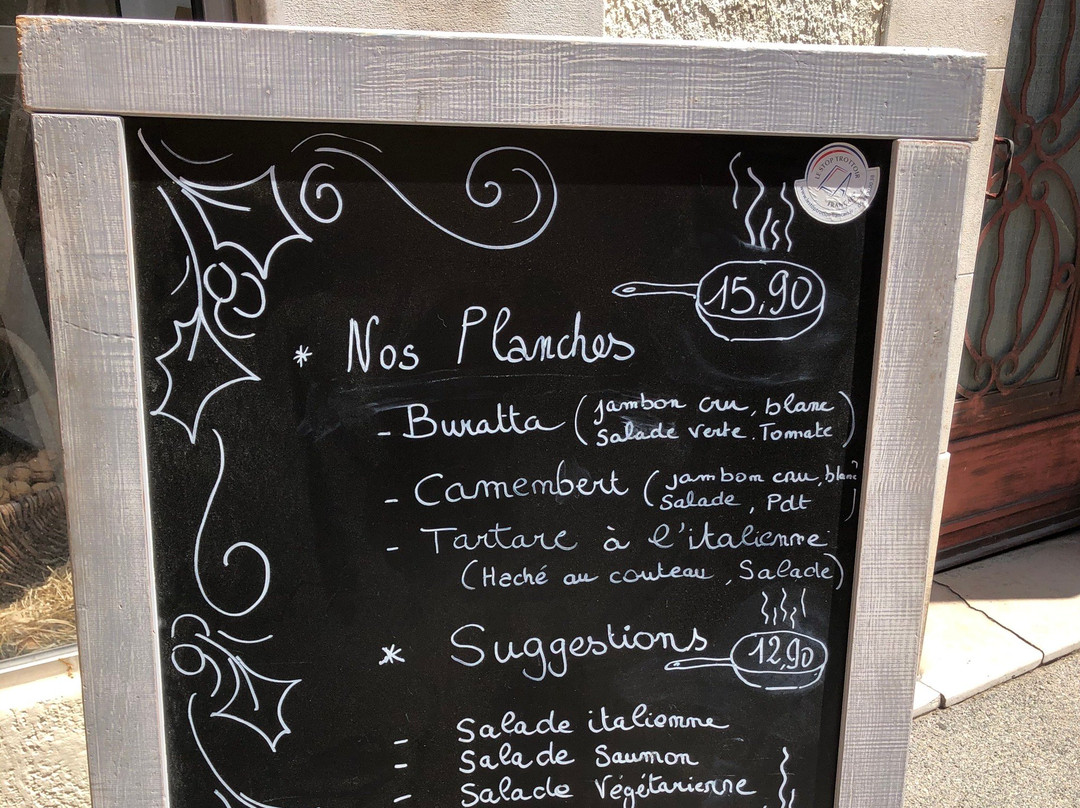 LE STOP TROTTOIR
FRANÇAIS
15,90
* Nos Planches
- Buratta (jambon cru, blanc
Salade verte. Tomate)
- Camembert (jambon cru, blanc
Salade, Pdt)
- Tartare à l'italienne
(Haché au couteau, Salade)
* Suggestions
12,90
- Salade italienne
- Salade Saumon
- Salade Végétarienne